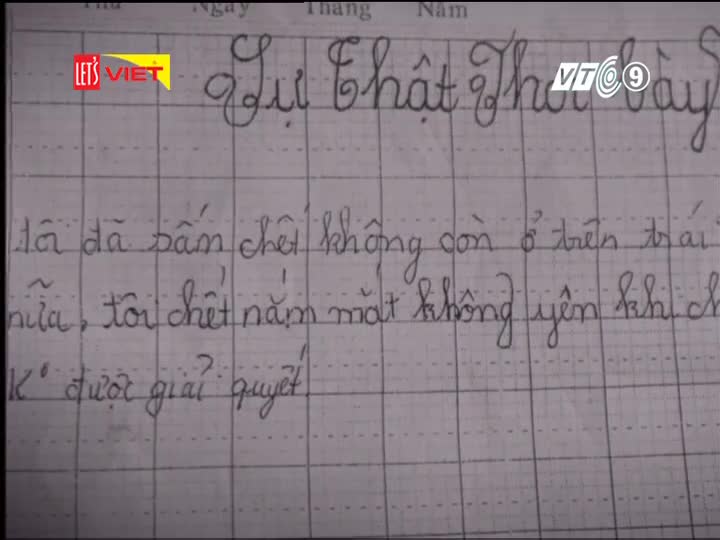 Thứ Ngày Tháng Năm
LET'S VIỆT
VTC 9
Sự Thật Phơi bày
tôi đã sắm chết không còn ở trên trái
nữa, tôi chết nắm mắt không yên khi ch
K° được giải quyết